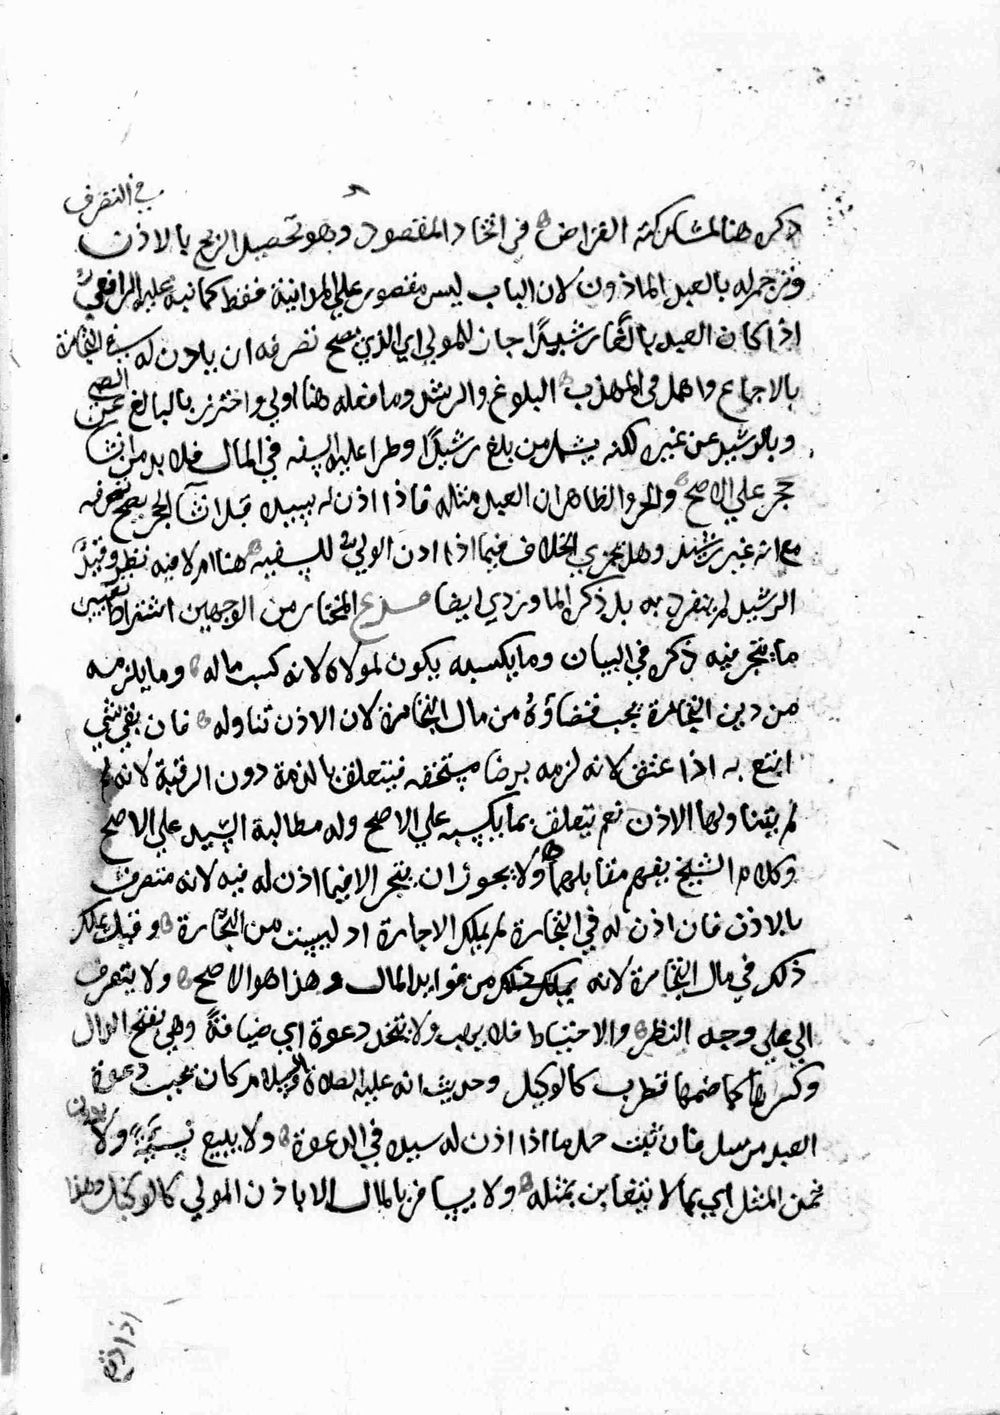 في التصرف
ذكره هنا لمشاركته القراض في اتحاد المقصود وهو تحصيل الربح بالاذن
وترجم له بالعبد الماذون لان الباب ليس مقصور علي المداينة فقط كما نبه عليه الرافعي
اذا كان العبد بالغا رشيدًا جاز للمولي اي الذي يصح تصرفه ان ياذن له في التجارة
بالاجماع واهمل في المهذب البلوغ والرشد وما فعله هنا اولي واحترز بالبالغ عن الصبي
وبالرشيد عن غيره لكنه يشمل من بلغ رشيدًا وطرا عليه السفه في المال فلا بد من انشا
حجر علي الاصح والحر والظاهر ان العبد مثله فاذا اذن له سيده قبل انشآ الحجر يصح تصرفه
مع انه غير رشيد وهل يجري الخلاف فيما اذا اذن الولي للسفيه هنا ام لا فيه نظر وقيد
الرشيد لم ينفرد به بل ذكره الماوردي ايضا فرع المختار من الوجهين اشتراط تعيين
ما يتجر فيه ذكره في البيان وما يكسبه يكون لمولاه لانه كسب ماله وما يلزمه
من دين التجارة يجب قضاؤه من مال التجارة لان الاذن تناوله فان بقي شي
اتبع به اذا عتق لانه لزمه برضا مستحقه فيتعلق بالذمة دون الرقبة لانه لم
لم يتناولها الاذن نعم يتعلق بما يكسبه علي الاصح وله مطالبة السيد علي الاصح
وكلام الشيخ يفهم مقابلهما ولا يجوز ان يتجر الا فيما اذن له فيه لانه متصرف
بالاذن فان اذن له في التجارة لم يملك الاجارة اذ ليست من التجارة وقيل يملك
ذلك في مال التجارة لانه من فوايد المال وهذا هو الاصح ولا يتصرف
الي علي وجه النظر والاحتياط فلا يهب ولا يتخذ دعوة اي ضيافةً وهي بفتح الدال
وكسرها كما ضمها قطرب كالوكيل وحديث انه عليه الصلاة والسلام كان يجيب دعوة
العبد مرسل فان ثبت حمل ما اذا اذن له سيده في الدعوة ولا يبيع نسيئة ولا بدون
ثمن المثل اي بما لا يتغابن بمثله ولا يسافر بالمال الا باذن المولي كالوكيل وهذا
اذا اذن